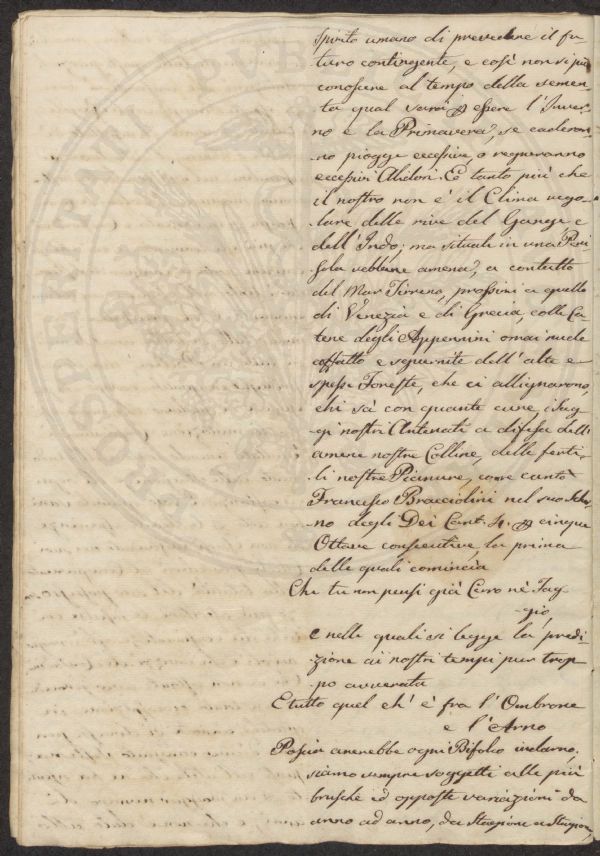 spirito umano di prevedere il fu-
turo contingente, e così non si può
conoscere al tempo della semen-
ta qual sarà p essere l'Inver-
no e la Primavera, se caderan-
no piogge eccessive, o regneranno
eccessivi Alidori. E tanto più che
il nostro non è il Clima rego-
lare delle rive del Gange e
dell'Indo; ma situati in una Peni-
sola sebbene amena, a contatto
del Mar Tirreno, prossimi a quello
di Venezia e di Grecia, colle Ca-
tene degli Appennini omai nude
affatto e sguernite dell'alte e
spesse Foreste, che ci allignarono,
chi sà con quante cure i Sag-
gi nostri Antenati a difesa dell'
amene nostre Colline, delle ferti-
li nostre Pianure, come cantò
Francesco Bracciolini nel suo Scher-
no degli Dei Cant. 4. p cinque
Ottave consecutive, la prima
delle quali comincia
Che tu non pensi già Cerro nè Fag-
gio,
e nelle quali si legge la predi-
zione ai nostri tempi pur trop-
po avverata
E tutto quel ch' è fra l' Ombrone
e l' Arno
Poscia arerebbe ogni Bifolco indarno,
siamo sempre soggetti alle più
brusche ed opposte variazioni da
anno ad anno, da Stagione a Stagione,